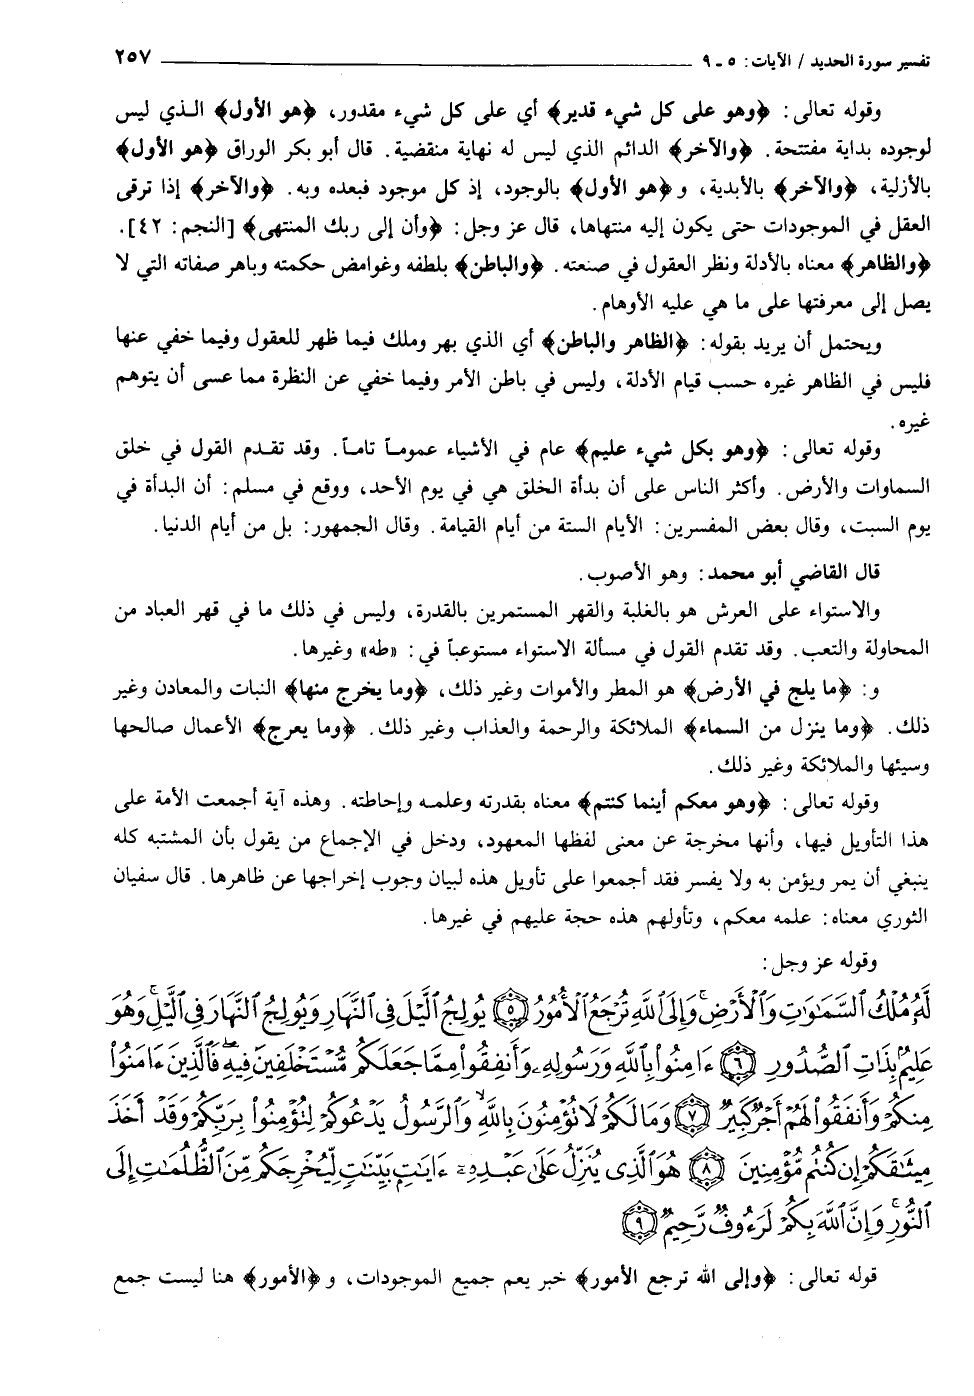 تفسير سورة الحديد / الآيات: ٥ ـ ٩ ٢٥٧
وقوله تعالى: ﴿وهو على كل شيء قدير﴾ أي على كل شيء مقدور، ﴿هو الأول﴾ الـذي ليس
لوجوده بداية مفتتحة. ﴿والآخر﴾ الدائم الذي ليس له نهاية منقضية. قال أبو بكر الوراق ﴿هو الأول﴾
بالأزلية، ﴿والآخر﴾ بالأبدية، و﴿هو الأول﴾ بالوجود، إذ كل موجود فبعده وبه. ﴿والآخر﴾ إذا ترقى
العقل في الموجودات حتى يكون إليه منتهاها، قال عز وجل: ﴿وأن إلى ربك المنتهى﴾ [النجم: ٤٢].
﴿والظاهر﴾ معناه بالأدلة ونظر العقول في صنعته. ﴿والباطن﴾ بلطفه وغوامض حكمته وباهر صفاته التي لا
يصل إلى معرفتها على ما هي عليه الأوهام.
ويحتمل أن يريد بقوله: ﴿الظاهر والباطن﴾ أي الذي بهر وملك فيما ظهر للعقول وفيما خفي عنها
فليس في الظاهر غيره حسب قيام الأدلة، وليس في باطن الأمر وفيما خفي عن النظرة مما عسى أن يتوهم
غيره.
وقوله تعالى: ﴿وهو بكل شيء عليم﴾ عام في الأشياء عمومـاً تامـاً. وقد تقـدم القول في خلق
السماوات والأرض. وأكثر الناس على أن بدأة الخلق هي في يوم الأحد، ووقع في مسلم: أن البدأة في
يوم السبت، وقال بعض المفسرين: الأيام الستة من أيام القيامة. وقال الجمهور: بل من أيام الدنيا.
قال القاضي أبو محمد: وهو الأصوب.
والاستواء على العرش هو بالغلبة والقهر المستمرين بالقدرة، وليس في ذلك ما في قهر العباد من
المحاولة والتعب. وقد تقدم القول في مسألة الاستواء مستوعباً في: «طه» وغيرها.
و: ﴿ما يلج في الأرض﴾ هو المطر والأموات وغير ذلك، ﴿وما يخرج منها﴾ النبات والمعادن وغير
ذلك. ﴿وما ينزل من السماء﴾ الملائكة والرحمة والعذاب وغير ذلك. ﴿وما يعرج﴾ الأعمال صالحها
وسيئها والملائكة وغير ذلك.
وقوله تعالى: ﴿وهو معكم أينما كنتم﴾ معناه بقدرته وعلمـه وإحاطته. وهذه آية أجمعت الأمة على
هذا التأويل فيها، وأنها مخرجة عن معنى لفظها المعهود، ودخل في الإجماع من يقول بأن المشتبه كله
ينبغي أن يمر ويؤمن به ولا يفسر فقد أجمعوا على تأويل هذه لبيان وجوب إخراجها عن ظاهرها. قال سفيان
الثوري معناه: علمه معكم، وتأولهم هذه حجة عليهم في غيرها.
وقوله عز وجل:
لَّهُ مُلْكُ السَّمَٰوَٰتِ وَالْأَرْضِ ۚ وَإِلَى اللَّهِ تُرْجَعُ الْأُمُورُ ﴿٥﴾ يُولِجُ الَّيْلَ فِي النَّهَارِ وَيُولِجُ النَّهَارَ فِي الَّيْلِ ۚ وَهُوَ
عَلِيمٌ بِذَاتِ الصُّدُورِ ﴿٦﴾ ءَامِنُوا بِاللَّهِ وَرَسُولِهِ وَأَنفِقُوا مِمَّا جَعَلَكُم مُّسْتَخْلَفِينَ فِيهِ ۖ فَالَّذِينَ ءَامَنُوا
مِنكُمْ وَأَنفَقُوا لَهُمْ أَجْرٌ كَبِيرٌ ﴿٧﴾ وَمَا لَكُمْ لَا تُؤْمِنُونَ بِاللَّهِ ۙ وَالرَّسُولُ يَدْعُوكُمْ لِتُؤْمِنُوا بِرَبِّكُمْ وَقَدْ أَخَذَ
مِيثَٰقَكُمْ إِن كُنتُم مُّؤْمِنِينَ ﴿٨﴾ هُوَ الَّذِي يُنَزِّلُ عَلَىٰ عَبْدِهِ ءَايَٰتٍ بَيِّنَٰتٍ لِّيُخْرِجَكُم مِّنَ الظُّلُمَٰتِ إِلَى
النُّورِ ۚ وَإِنَّ اللَّهَ بِكُمْ لَرَءُوفٌ رَّحِيمٌ ﴿٩﴾
قوله تعالى: ﴿وإلى الله ترجع الأمور﴾ خبر يعم جميع الموجودات، و﴿الأمور﴾ هنا ليست جمع